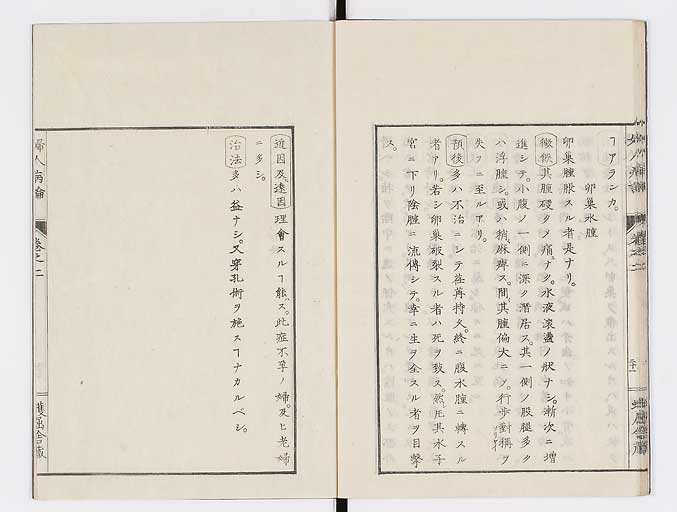 ヿアランカ。
卵巣水腫
卵巣腫脹スル者是ナリ。
徴候 其腫硬クメ痛ナク。水液滾盪ノ状ナシ。漸次ニ増
進シテ。小腹ノ一側ニ深ク潜居ス。其一側ノ股腿多ク
ハ浮腫シ。或ハ稍麻痺ス。間其腫偏大ニメ。行歩對稱ヲ
失フニ至ルアリ。
預後 多ハ不治ニシテ荏苒持久。終ニ腹水腫ニ轉スル
者アリ。若シ卵巣破裂スル者ハ死ヲ致ス。然𪜈其水子
宮ニ下リ陰腟ニ流傳シテ。幸ニ生ヲ全スル者ヲ目撃
ス。
婦人病論
卷之二
蠖屈舎蔵
近因及遠因 理會スルヿ能ス。此症不孕ノ婦。及ヒ老婦
ニ多シ。
治法 多ハ益ナシ。又穿孔術ヲ施スヿナカルベシ。